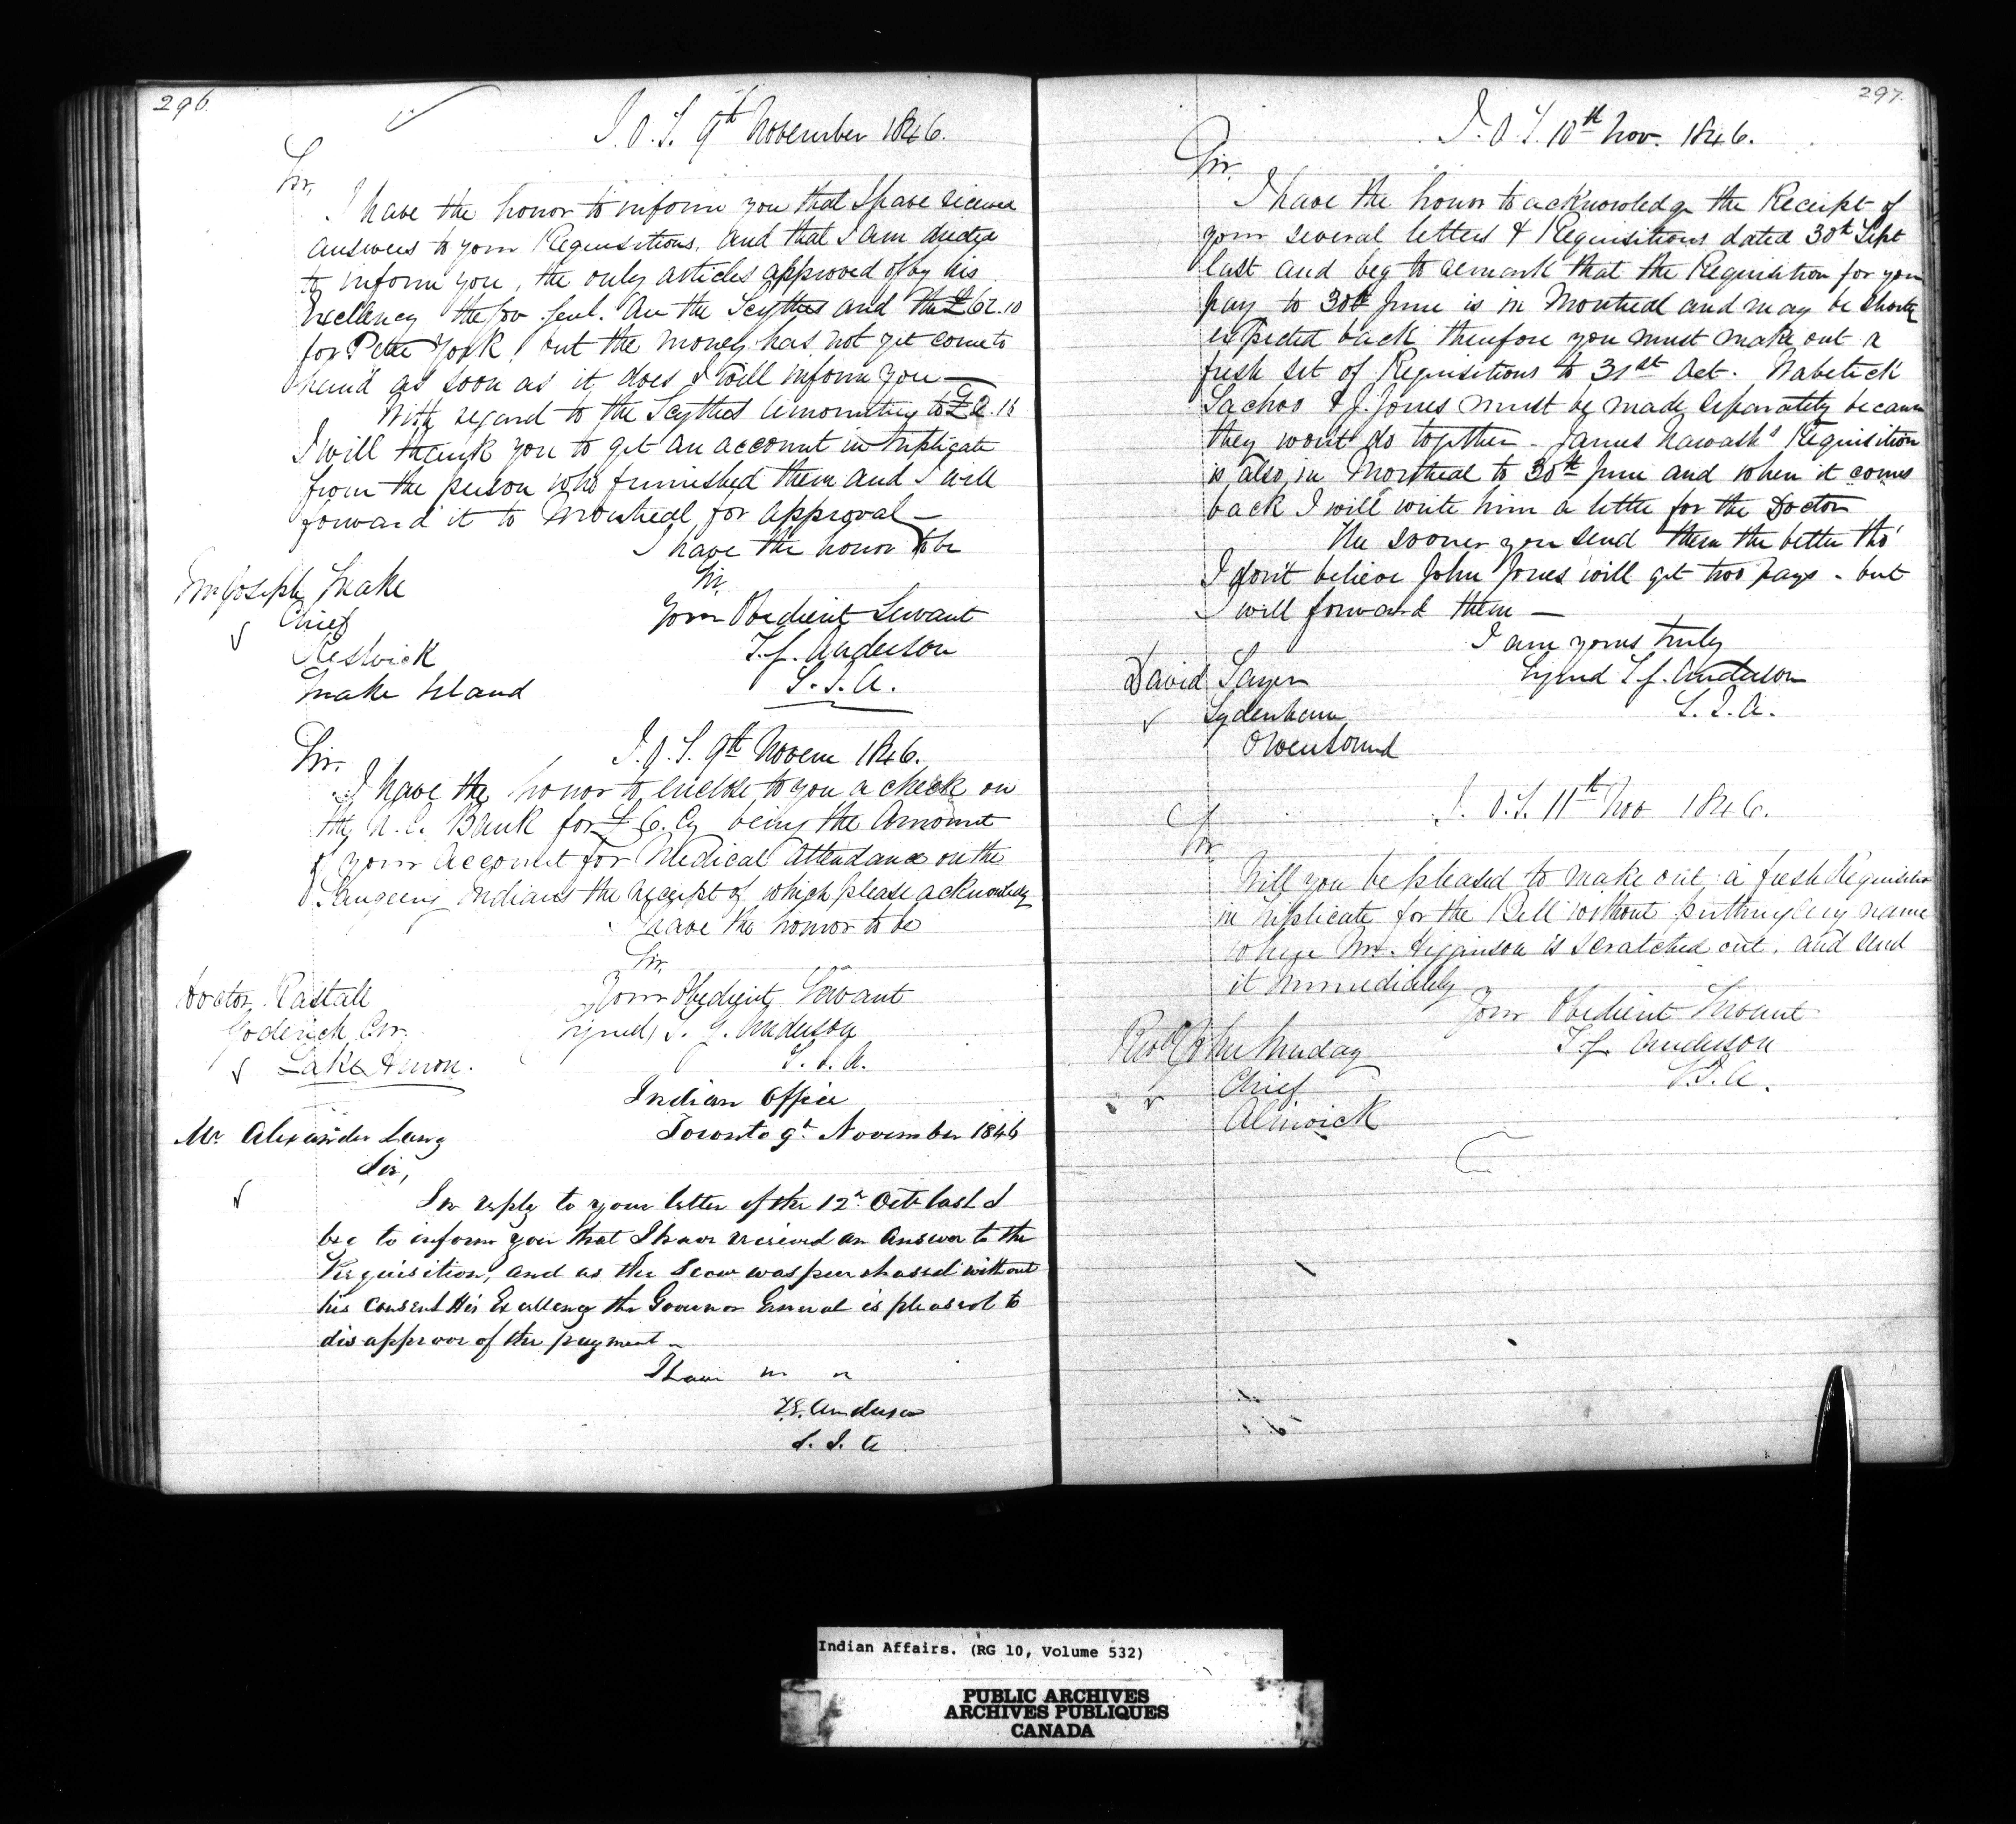 296.
I. O. T. 9th November 1846.
Sir,
I have the honor to inform you that I have received
answers to your Requisitions, and that I am directed
to inform you, the only articles approved of by his
Excellency the Gov. Genl. are the Scythes and the £62.10
for Peter York, but the money has not yet come to
hand as soon as it does I will inform you —
With regard to the Scythes amounting to
I will thank you to get an account in triplicate
from the person who furnished them and I will
forward it to Montreal for approval —
I have the honor to be
Sir,
Mr Joseph Snake
Chief
Your Obedient Servant
Reswick
T. G. Anderson
Snake Island
S. I. A.
I. O. T. 9th Novem 1846.
Sir.
I have the honor to enclose to you a check on
the U. C. Bank for £6. Cy being the Amount
of your Account for Medical Attendance on the
Saugeeng Indians the receipt of which please acknowledge
I have the honor to be
Sir
Doctor Rastall
Your Obedient Servant
Goderich
Signed, T. G. Anderson
Lake Huron.
S. I. A.
Indian Office
Mr Alexander Lang
Toronto 9th November 1846
Sir,
In reply to your letter of the 12th Octr last I
beg to inform you that I have received an answer to the
Requisition, and as the Scow was purchased without
his consent His Excellency the Governor General is pleased to
disapprove of the payment —
I have " "
T. G. Anderson
S. I. A
297.
I. O. T. 10th Nov. 1846.
Sir,
I have the honor to acknowledge the Receipt of
your several letters & Requisitions dated 30th Sept
last and beg to remark that the Requisition for your
pay to 30th June is in Montreal and may be shortly
expected back therefore you must make out a
fresh set of Requisitions to 31st Oct. Wabetick
Sachoo & J. Jones must be made separately because
they wont do together — James Nawash's Requisition
is also in Montreal to 30th June and when it comes
back I will write him a letter for the Doctor
The sooner you send them the better tho'
I don't believe John Jones will get two pays — but
I will forward them —
I am yours truly
David Sawyer
Signed T. G. Anderson
Sydenham
S. I. A.
Owensound
I. O. T. 11th Nov 1846.
Sir
Will you be pleased to make out a fresh Requisition
in triplicate for the Bell without putting any name
where Mr. Higginson is scratched out, and send
it immediately
Your Obedient Servant
Revd John Sunday
T. G. Anderson
Chief
S. I. A.
Alnwick
Indian Affairs. (RG 10, Volume 532)
PUBLIC ARCHIVES
ARCHIVES PUBLIQUES
CANADA